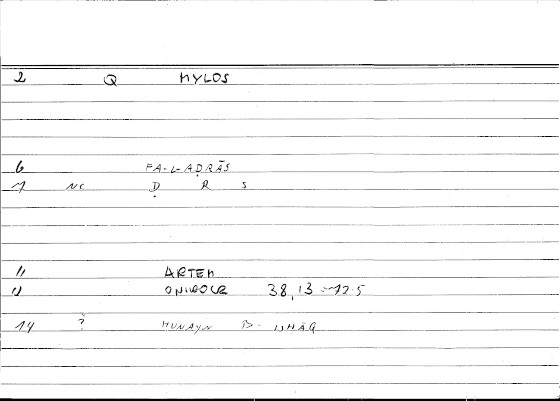 2 Q MYLOS
6 FA-L-AḌRĀS
7 NC Ḍ R S
11 ARTEM
ONIROCR 38,13 = 72.5
14 ? HUNAYN B. ISHĀQ